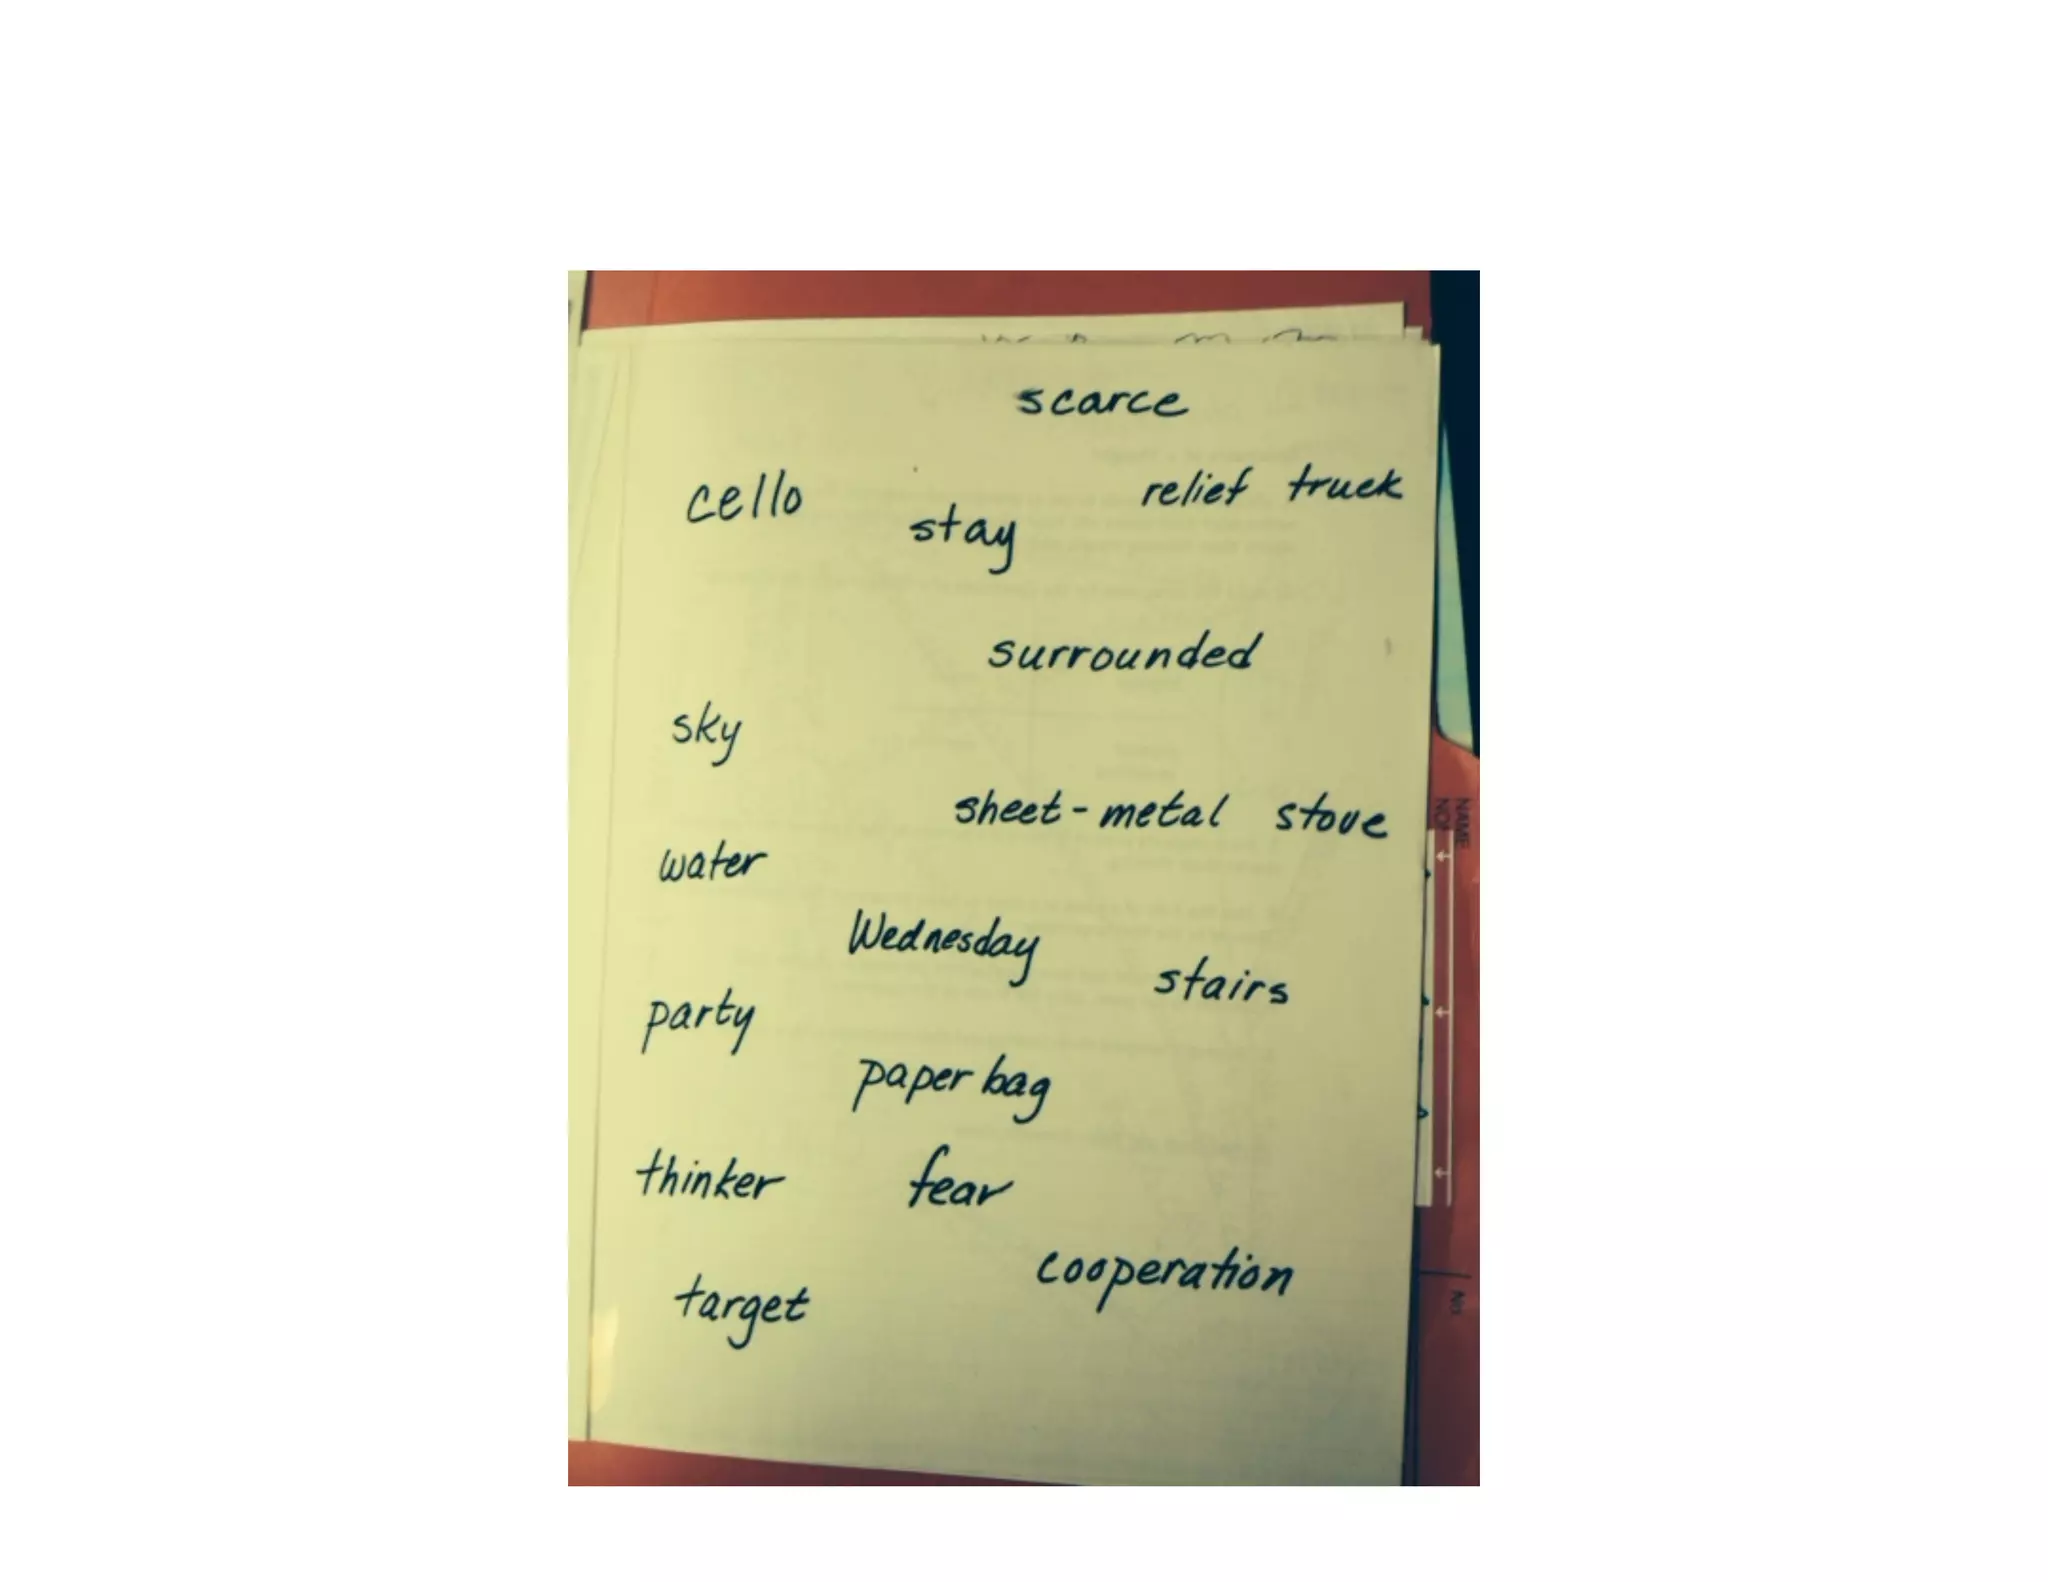 scarce
cello
relief truck
stay
surrounded
sky
sheet-metal stove
water
Wednesday
stairs
party
paper bag
thinker
fear
cooperation
target
NAME
NO.